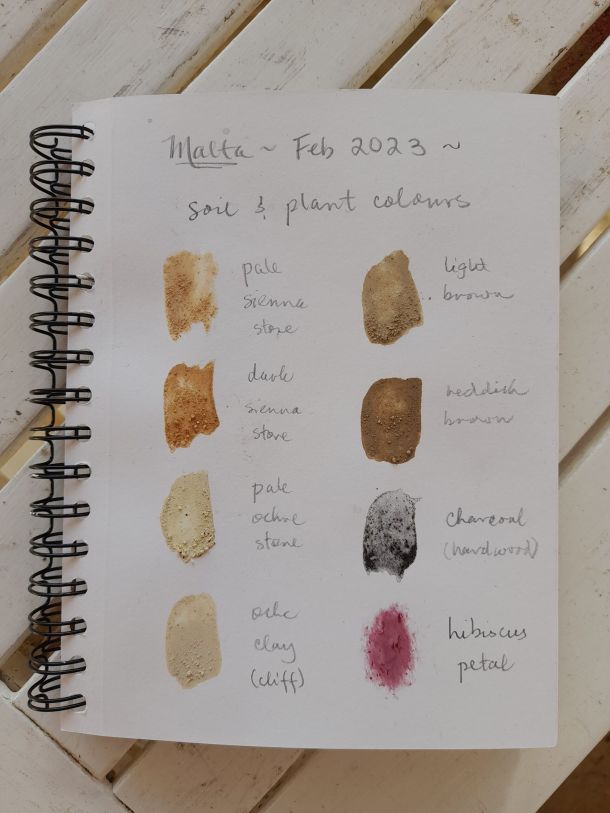 Malta ~ Feb 2023 ~
soil & plant colours
pale
sienna
stone
dark
sienna
stone
pale
ochre
stone
clay
(cliff)
light
brown
reddish
brown
charcoal
(hardwood)
hibiscus
petal